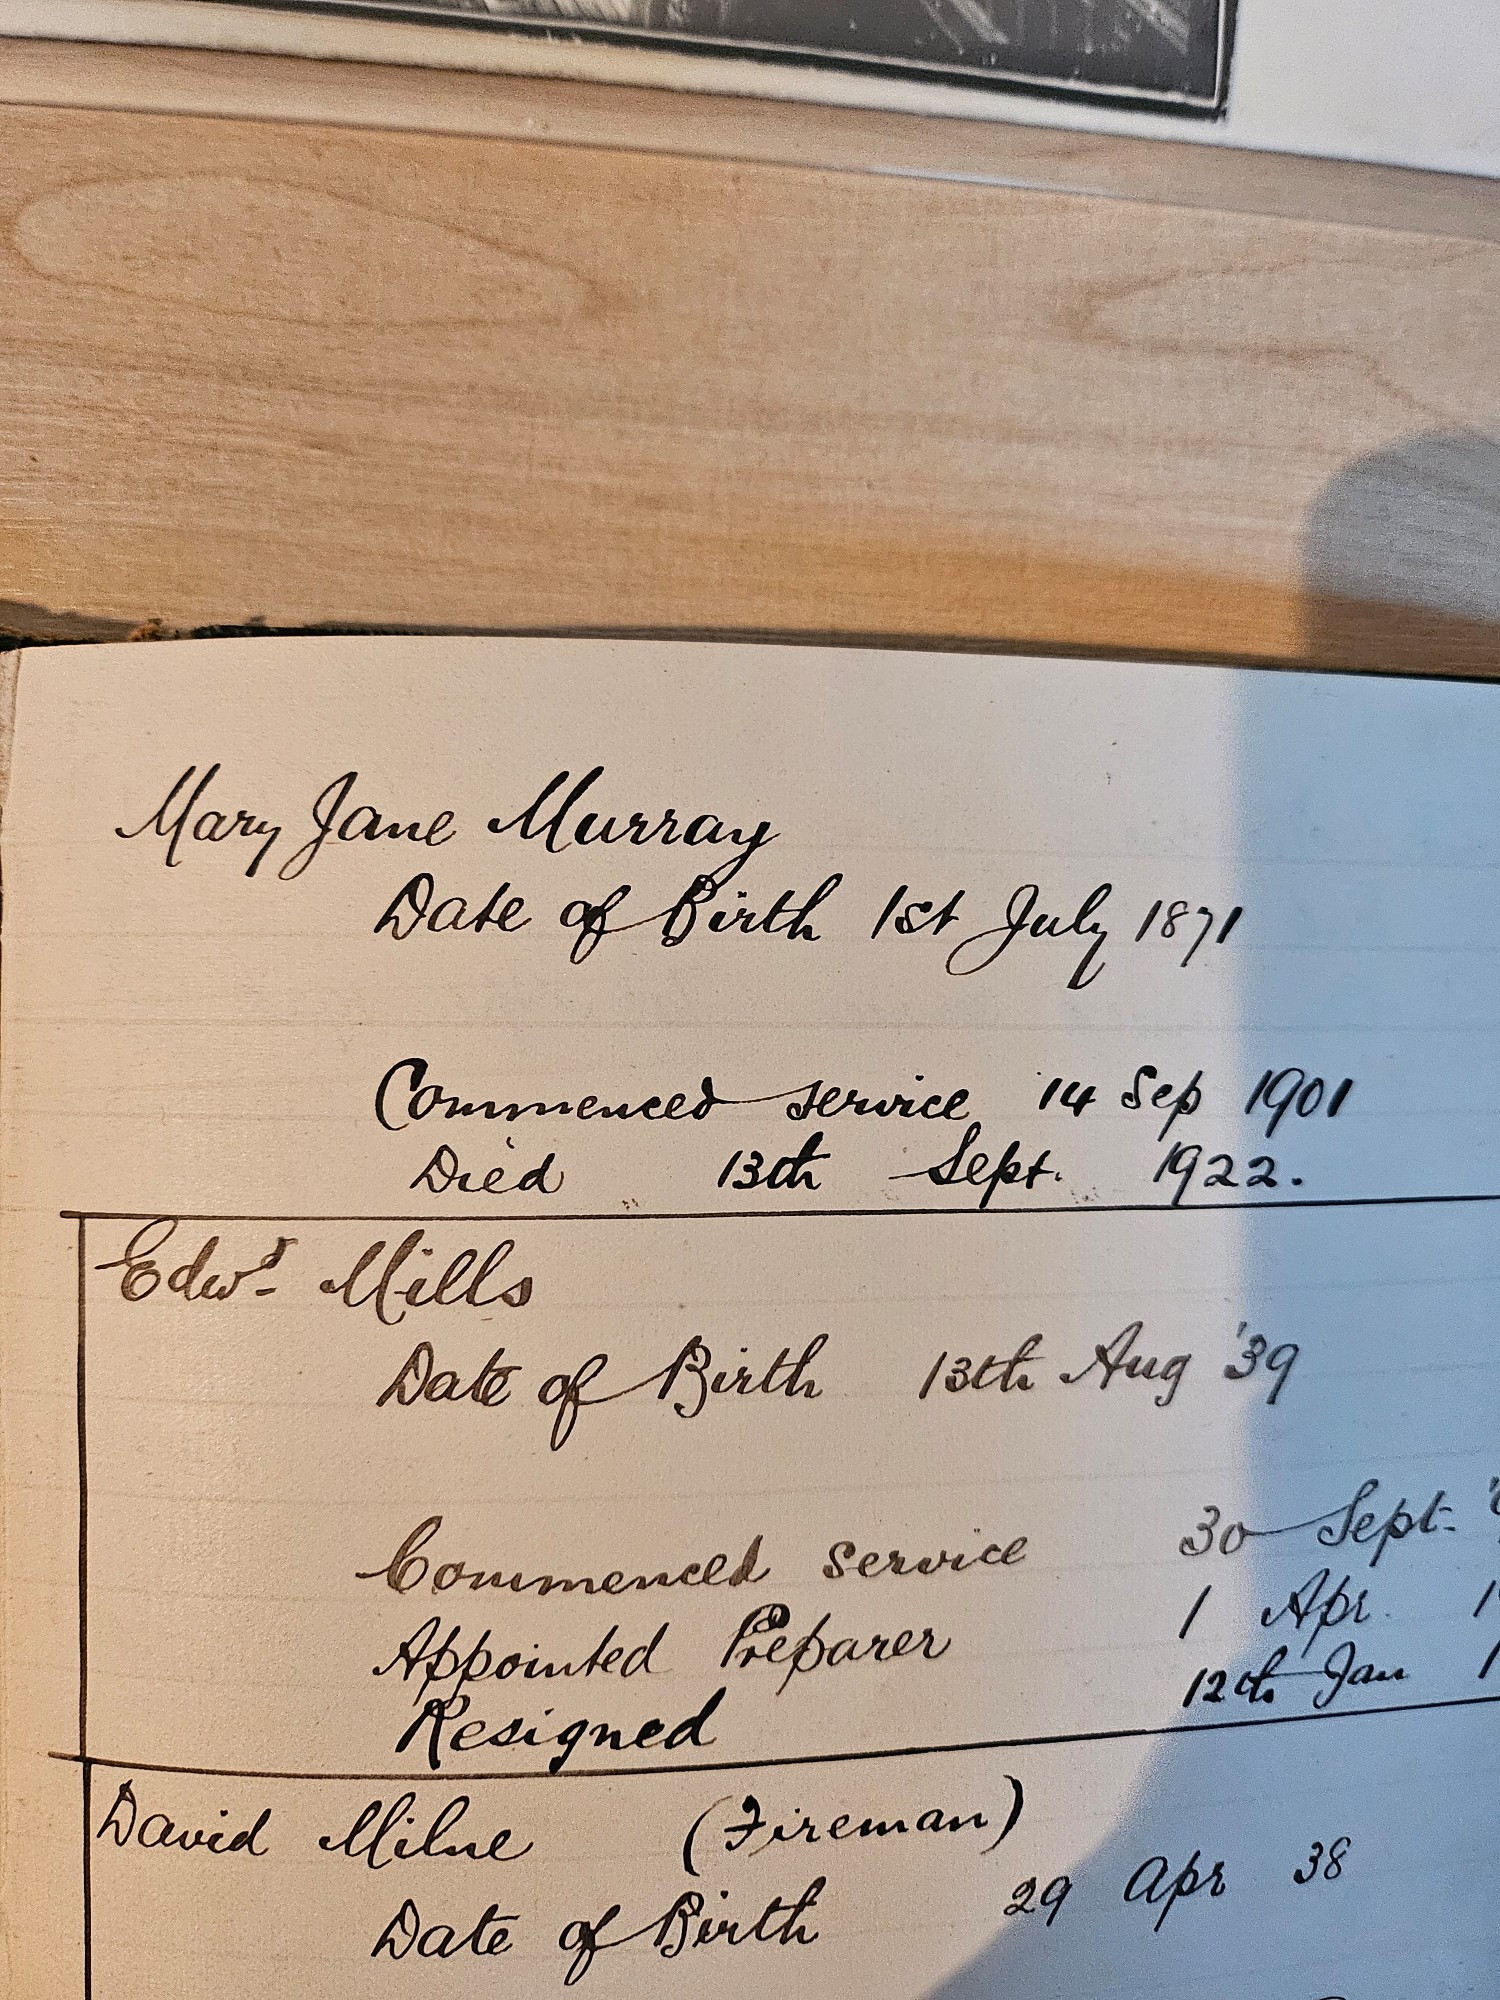 Mary Jane Murray
Date of Birth 1st July 1871
Commenced service 14 Sep 1901
Died 13th Sept. 1922.
Edwd. Mills
Date of Birth 13th Aug '39
Commenced service 30 Sept.
Appointed Preparer 1 Apr.
Resigned 12th Jan
David Milne (Fireman)
Date of Birth 29 Apr 38